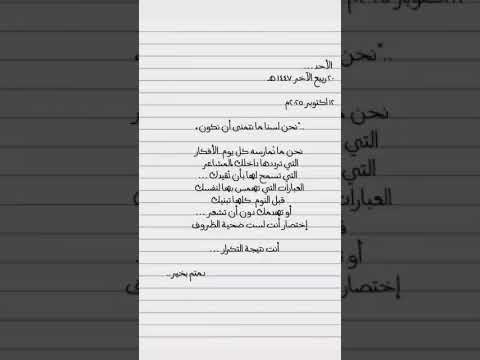 الأحد ...
٢٠ ربيع الآخر ١٤٤٧هـ
١٢ اكتوبر ٢٠٢٥م
.."نحن لسنا ما نتمنى أن نكون ،
نحن ما نُمارسه كل يوم..الأفكار
التي ترددها داخلك،المشاعر
التي تسمح لها بأن تقيدك ...
العبارات التي تهمس بها لنفسك
قبل النوم..كلها تبنيك
أو تهدمك دون أن تشعر ...
إختصار أنت لست ضحية الظروف
أنت نتيجة التكرار ...
دمتم بخير ..